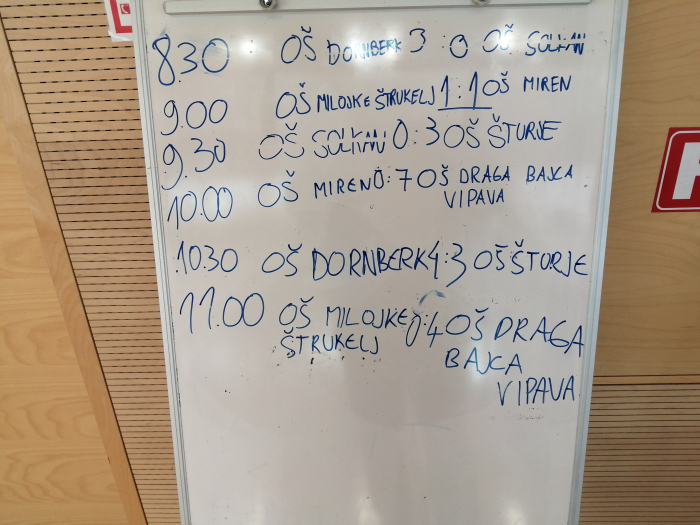 8.30 : OŠ DORNBERK 3 : 0 OŠ SOLKAN
9.00 OŠ MILOJKE ŠTRUKELJ 1 : 1 OŠ MIREN
9.30 OŠ SOLKAN 0 : 3 OŠ ŠTURJE
10.00 OŠ MIREN 0 : 7 OŠ DRAGA BAJCA
VIPAVA
10.30 OŠ DORNBERK 4 : 3 OŠ ŠTURJE
11.00 OŠ MILOJKE 0 : 4 OŠ DRAGA
ŠTRUKELJ BAJCA
VIPAVA